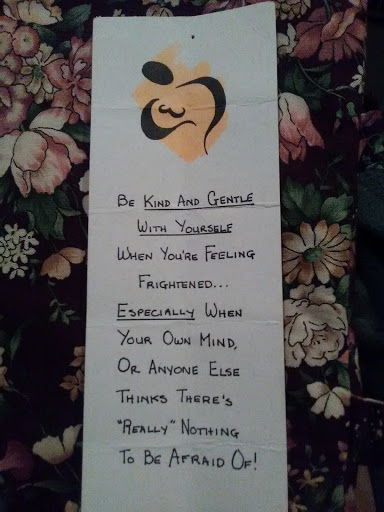 Be Kind And Gentle
With Yourself
When You're Feeling
Frightened...
Especially When
Your Own Mind,
Or Anyone Else
Thinks There's
"Really" Nothing
To Be Afraid Of!